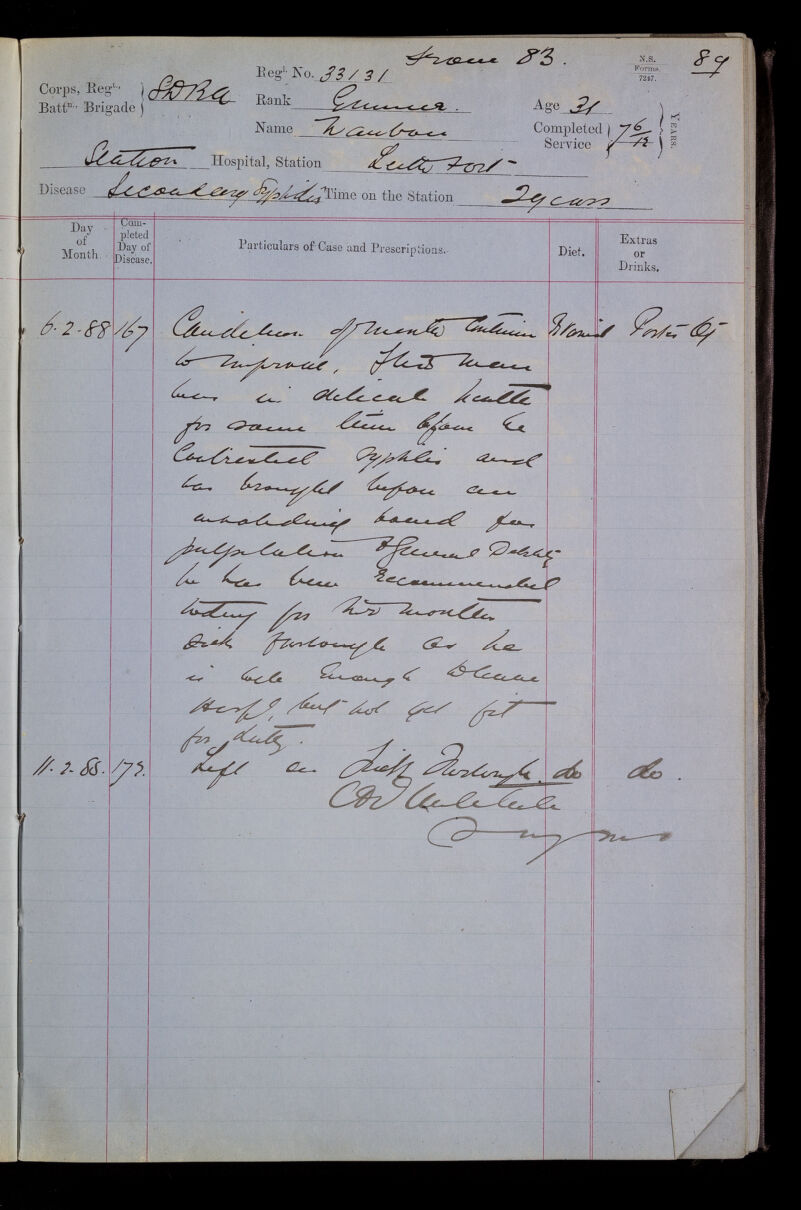 From 83.
N.S. Forms. 7247.
89
Corps, Regt. Battn. Brigade } SDRA
Regl. No. 33131
Rank Gunner.
Age 31
Name
Completed Service } 7 6/12 } YEARS.
Station Hospital, Station Leith Fort
Disease Secondary Syphilis Time on the Station 2 years
Day of Month.
Completed Day of Disease.
Particulars of Case and Prescriptions.
Diet.
Extras or Drinks.
6-2-88 167 Condition of mouth Continues Porter
to improve, This man
was in delicate health
for some time before he
Contracted Syphilis and
was brought before an
invaliding board for
palpitation & General Debility
he has been recommended
today for two months
Sick furlough as he
is well Enough to leave
Hospl, but not yet fit
for duty.
11-2-88. 172. Left on Sick Furlough. do do.